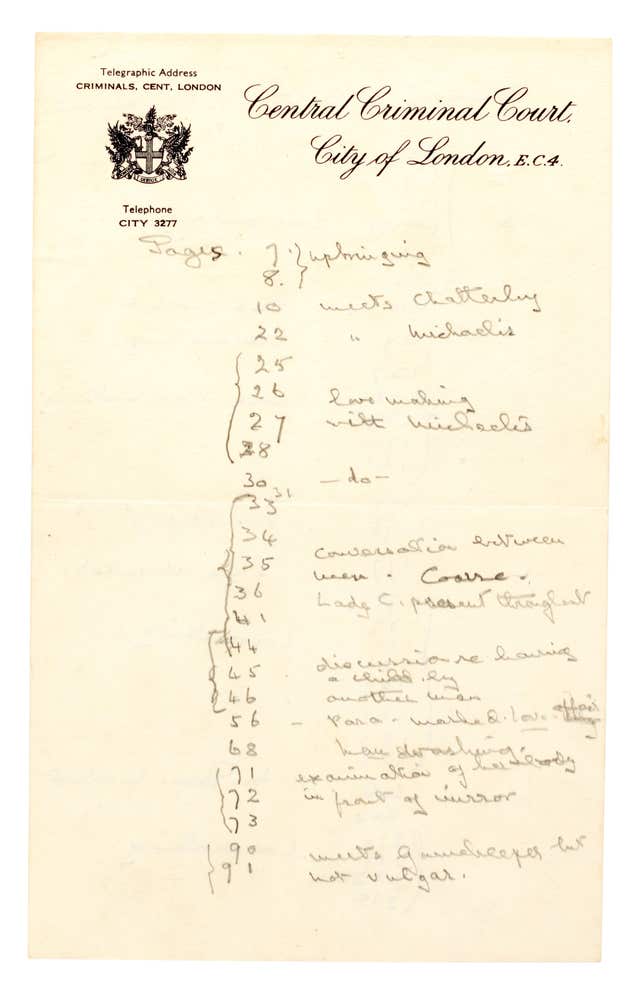 Telegraphic Address
CRIMINALS, CENT, LONDON
Central Criminal Court,
City of London, E.C.4.
Telephone
CITY 3277
Pages. 7. } upbringing
8.
10 meets Chatterley
22 " Michaelis
25
26 love making
27 with Michaelis
28
30 — do —
33 31
34
35 conversation between
men. Coarse.
36 Lady C. present throughout
41
44
45 discussion re having
a child by
46 another man
56 — Para. marked. love affair
68 Man washing.
71 examination of her body
72 in front of mirror
73
90 meets Gamekeeper but
91 not vulgar.